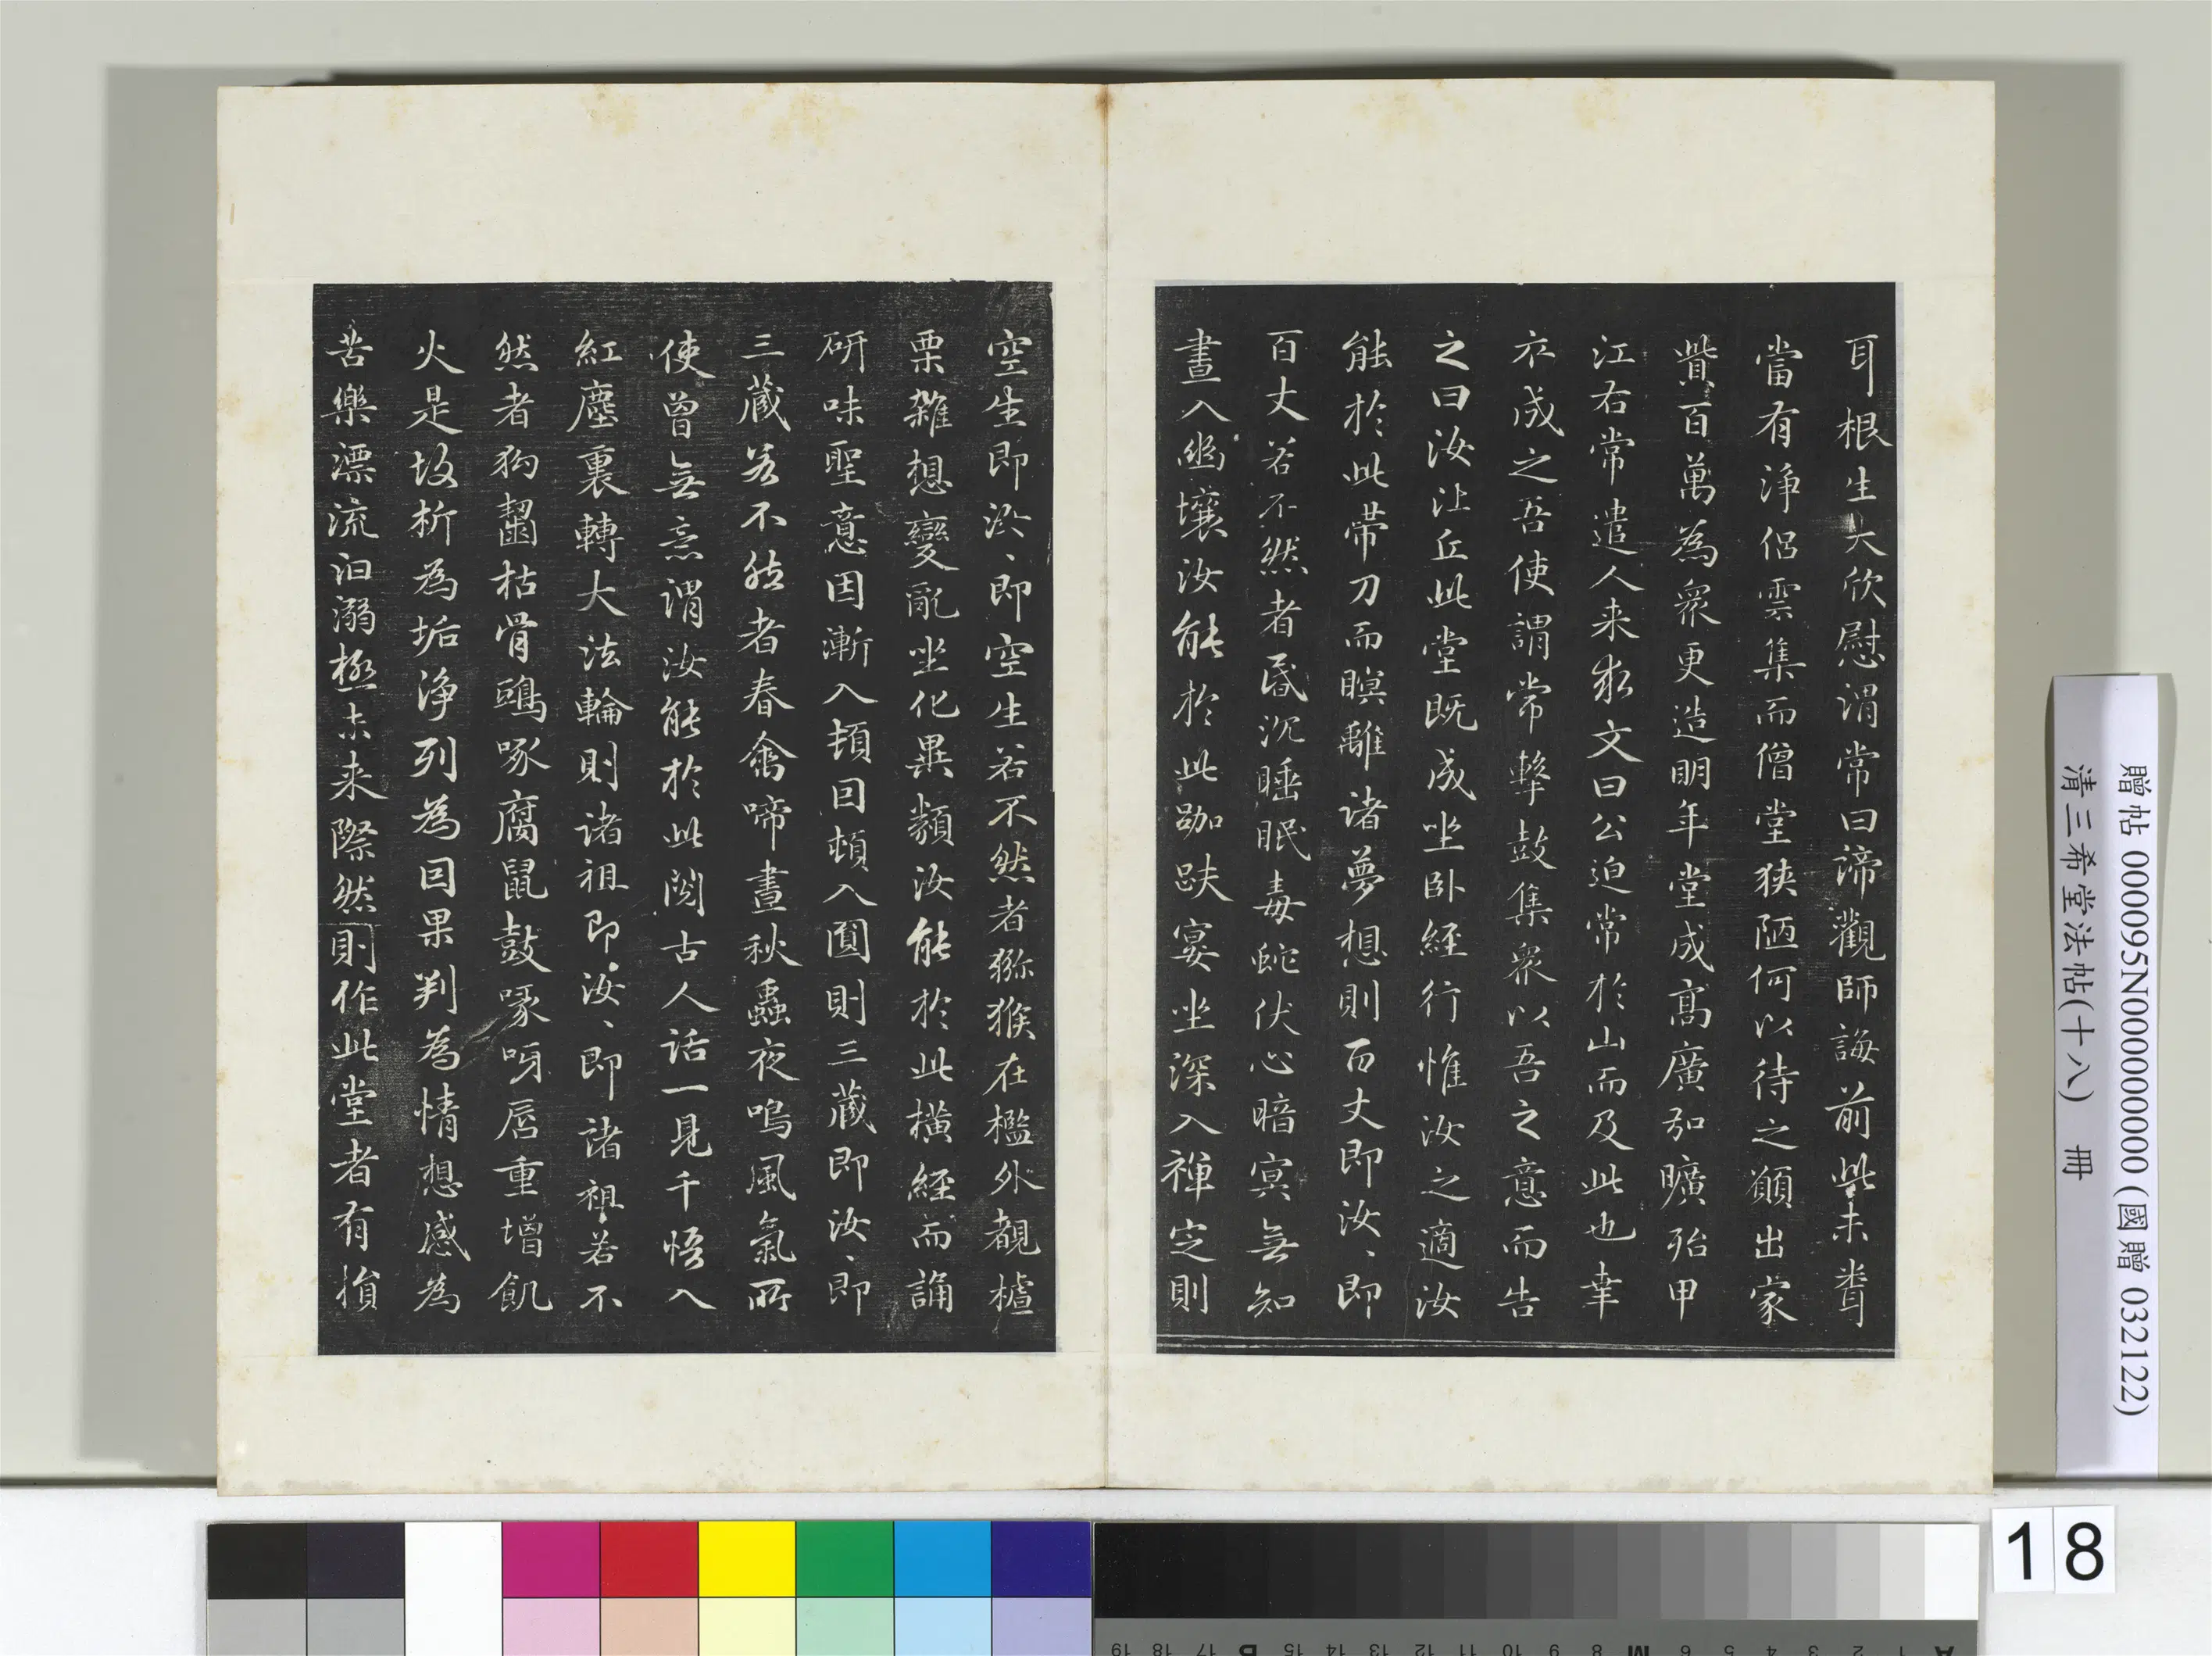 耳根生大欣慰謂常曰諦觀師誨前此未聳
當有淨侶雲集而僧堂狹陋何以待之願出家
貲百萬為眾更造明年堂成高廣如曠殆甲
江右常遣人来求文曰公迫常於山而及此也幸
不成之吾使謂常擊鼓集眾以吾之意而告
之曰汝比丘此堂既成坐卧經行惟汝之適汝
能於此帶刀而瞑離諸夢想則百丈即汝、即
百丈若不然者昏沉睡眠毒蛇伏心暗冥無知
晝入幽壤汝能於此跏趺宴坐深入禪定則
空生即汝、即空生若不然者獼猴在檻外覩樝
栗雜想變亂坐化異類汝能於此橫經而誦
研味聖意因漸入頓因頓入圓則三藏即汝、即
三藏若不然者春禽啼晝秋蟲夜鳴風氣所
使曾無意謂汝能於此閱古人話一見千悟入
紅塵裏轉大法輪則諸祖即汝、即諸祖若不
然者狗齧枯骨鴟啄腐鼠鼓喙呀唇重增飢
火是故析為垢淨列為因果判為情想感為
苦樂漂流汩溺極未来際然則作此堂者有損
贈帖 000095N000000000 (國贈 032122)
清三希堂法帖(十八) 冊
18
19 18 17 B 15 14 13 12 11 10 9 8 M 6 5 4 3 2 1 A